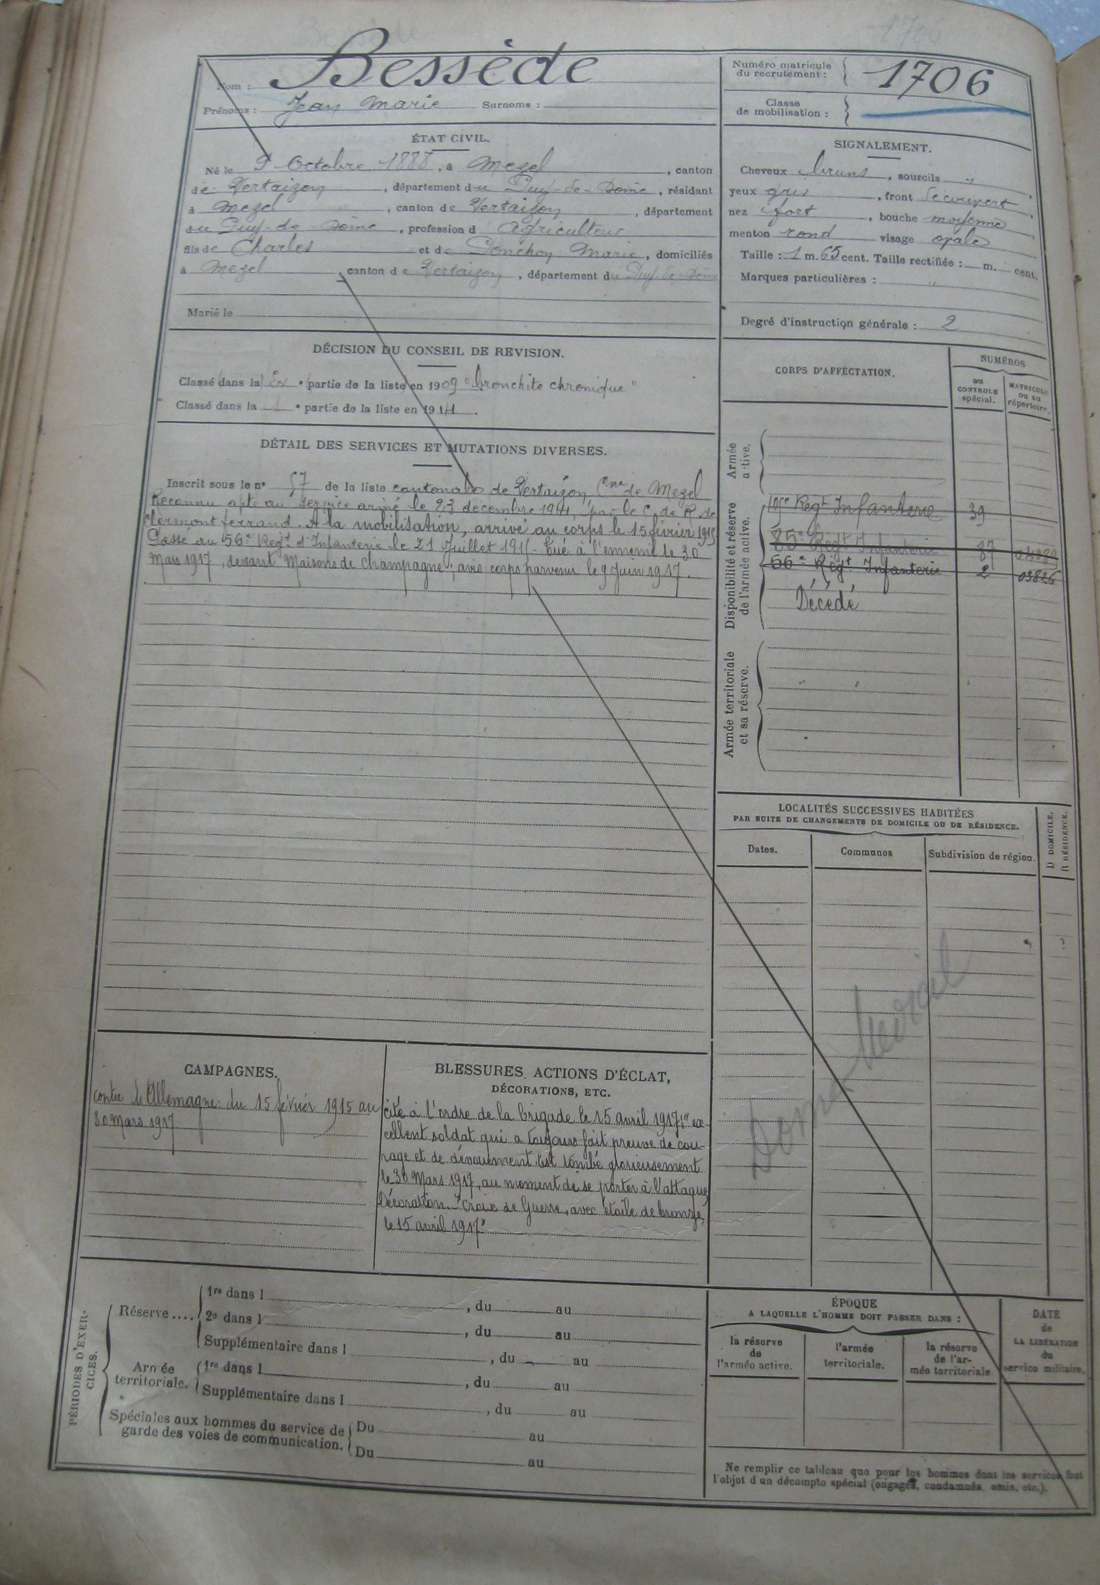 Nom : Bessède
Prénoms : Jean Marie Surnoms :
Numéro matricule du recrutement : 1706
Classe de mobilisation :
ÉTAT CIVIL.
Né le 9 Octobre 1888, à Mezel, canton
de Vertaizon, département du Puy-de-Dôme, résidant
à Mezel, canton de Vertaizon, département
du Puy-de-Dôme, profession d Agriculteur
fils de Charles et de Ponchon Marie, domiciliés
à Mezel, canton de Vertaizon, département du Puy-de-Dôme
Marié le
SIGNALEMENT.
Cheveux bruns, sourcils "
yeux gris, front découvert
nez fort, bouche moyenne
menton rond visage ovale
Taille : 1 m. 65 cent. Taille rectifiée : m. cent.
Marques particulières : "
Degré d'instruction générale : 2
DÉCISION DU CONSEIL DE REVISION.
Classé dans la partie de la liste en 1909 "bronchite chronique"
Classé dans la e partie de la liste en 1914.
DÉTAIL DES SERVICES ET MUTATIONS DIVERSES.
Inscrit sous le n° 57 de la liste cantonale de Vertaizon Cne de Mezel
Reconnu apte au service armé le 23 décembre 1914 par le C. de R. de
Clermont Ferrand. A la mobilisation, arrivé au corps le 15 février 1915
Passé au 56e Regt d'Infanterie le 21 Juillet 1915. Tué à l'ennemi le 30
Mars 1917, devant Maisons de Champagne, avis corps parvenu le 9 Juin 1917.
CORPS D'AFFECTATION.
NUMÉROS
DU CONTROLE spécial.
MATRICULE OU AU répertoire.
Armée active.
Disponibilité et réserve de l'armée active.
Regt Infanterie 39
Regt Infanterie 87
56e Régt Infanterie 2
Décédé
Armée territoriale et sa réserve.
LOCALITÉS SUCCESSIVES HABITÉES
PAR SUITE DE CHANGEMENTS DE DOMICILE OU DE RÉSIDENCE.
Dates.
Communes
Subdivision de région.
D DOMICILE.
R RÉSIDENCE.
CAMPAGNES.
contre l'Allemagne : du 15 février 1915 au
30 mars 1917
BLESSURES, ACTIONS D'ÉCLAT,
DÉCORATIONS, ETC.
cité à l'ordre de la brigade le 15 avril 1917 "ex-
cellent soldat qui a toujours fait preuve de cou-
rage et de dévouement, est tombé glorieusement
le 30 Mars 1917, au moment de se porter à l'attaque,
Décoration. "Croix de Guerre, avec étoile de bronze,
le 15 avril 1917"
PÉRIODES D'EXERCICES.
Réserve ....
1re dans l , du au
2e dans l , du au
Supplémentaire dans l , du au
Armée territoriale.
1re dans l , du au
Supplémentaire dans l , du au
Spéciales aux hommes du service de
garde des voies de communication.
Du au
Du au
ÉPOQUE
A LAQUELLE L'HOMME DOIT PASSER DANS :
la réserve de l'armée active.
l'armée territoriale.
la réserve de l'armée territoriale
DATE de LA LIBÉRATION du service militaire.
Ne remplir ce tableau que pour les hommes dont les services font
l'objet d'un décompte spécial (engagés, condamnés, omis, etc.).